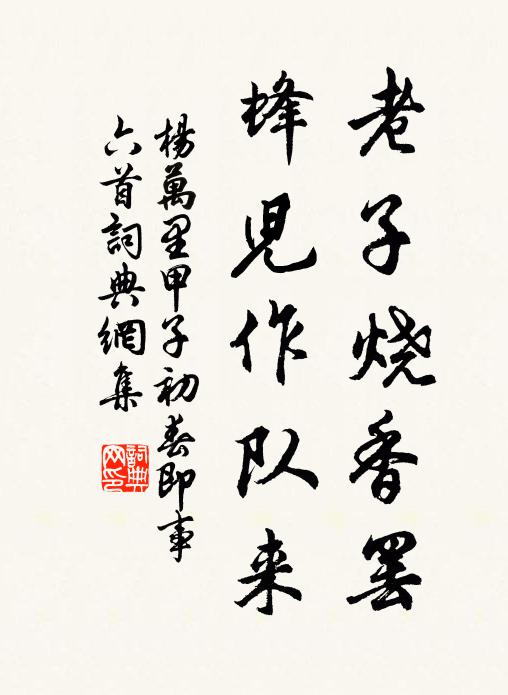 老子烧香罢
蜂児作队来
楊萬里甲子初春即事
六首詞典網集
詞典
网印